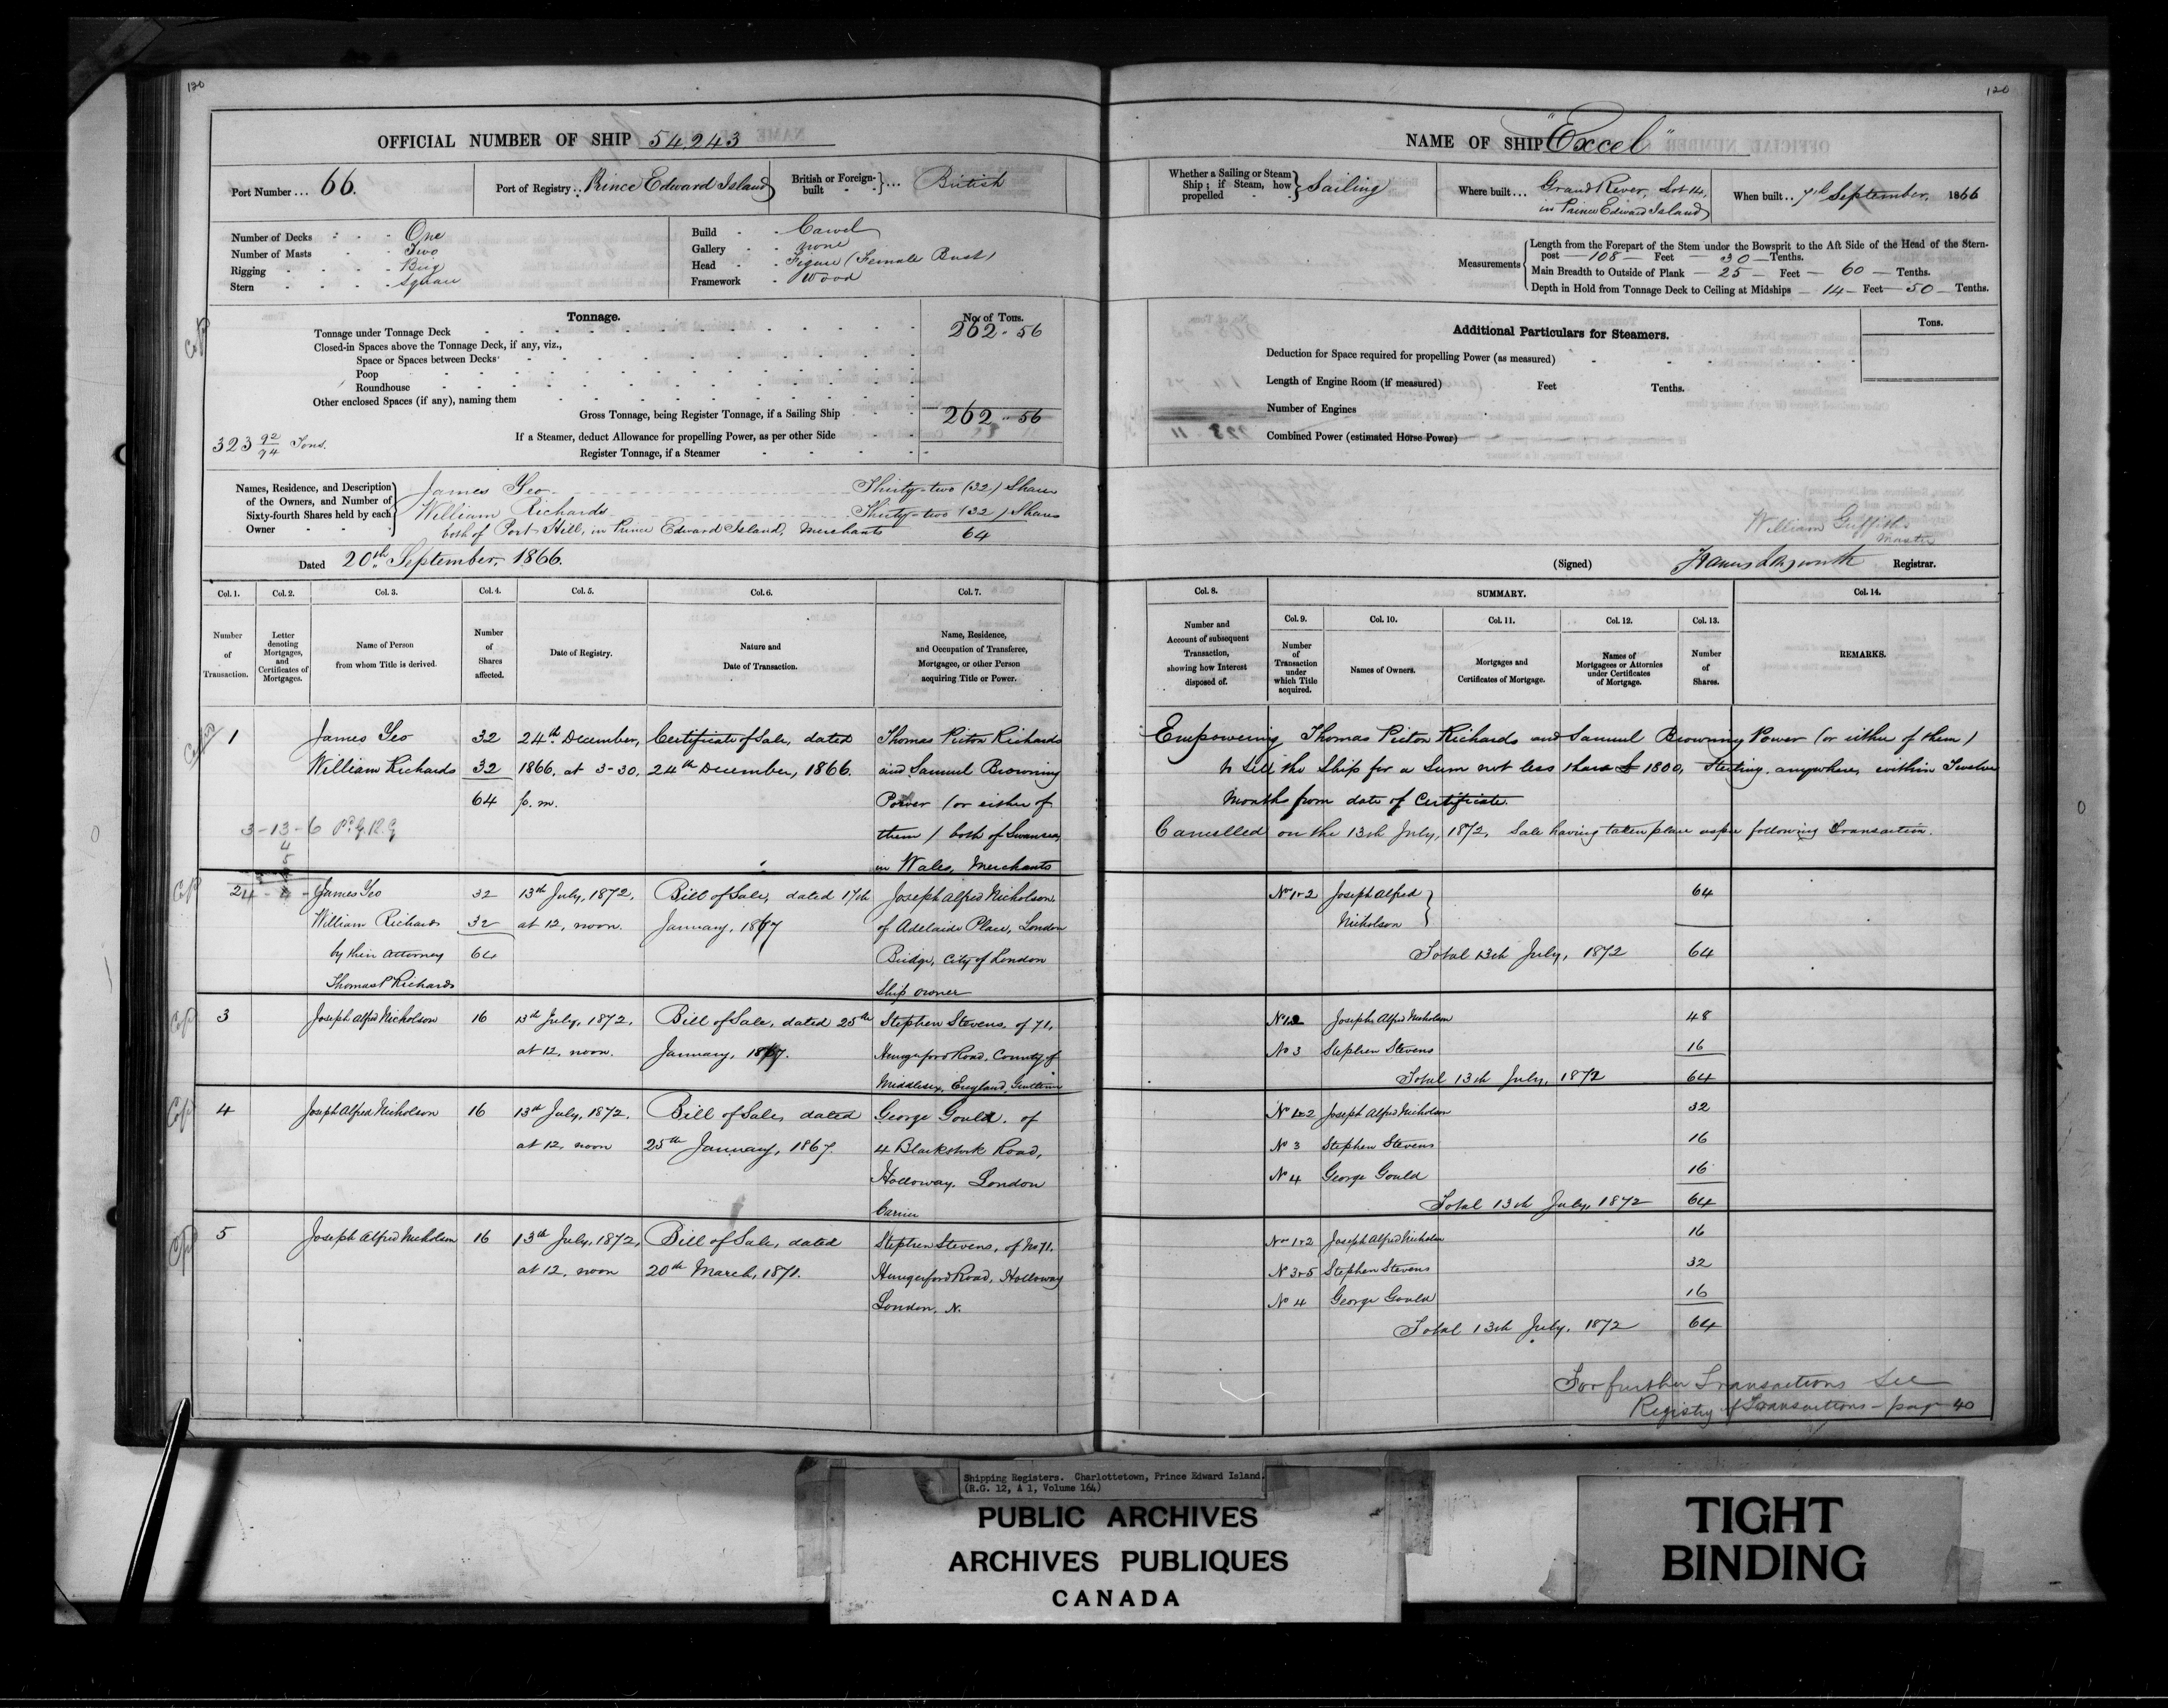 120
OFFICIAL NUMBER OF SHIP 54,243
Port Number ... 66.
Port of Registry .. Prince Edward Island
British or Foreign-built } ... British
Number of Decks - - - One
Number of Masts - - - Two
Rigging - - - - Brig
Stern - - - - square
Build - - Carvel
Gallery - - none
Head - - Figure (Female Bust)
Framework - Wood
Tonnage.
No. of Tons.
Tonnage under Tonnage Deck 262 .. 56
Closed-in Spaces above the Tonnage Deck, if any, viz.,
Space or Spaces between Decks
Poop
Roundhouse
Other enclosed Spaces (if any), naming them
Gross Tonnage, being Register Tonnage, if a Sailing Ship 262 .. 56
If a Steamer, deduct Allowance for propelling Power, as per other Side
323 92/94 Tons.
Register Tonnage, if a Steamer
Names, Residence, and Description of the Owners, and Number of Sixty-fourth Shares held by each Owner
James Yeo Thirty-two (32) Shares
William Richards Thirty-two (32) Shares
both of Port Hill, in Prince Edward Island, Merchants 64
Dated 20th September, 1866.
Col. 1. Col. 2. Col. 3. Col. 4. Col. 5. Col. 6. Col. 7.
Number of Transaction.
Letter denoting Mortgages, and Certificates of Mortgages.
Name of Person from whom Title is derived.
Number of Shares affected.
Date of Registry.
Nature and Date of Transaction.
Name, Residence, and Occupation of Transferee, Mortgagee, or other Person acquiring Title or Power.
1 James Yeo 32 24th December, Certificate of Sale, dated Thomas Picton Richards
William Richards 32 1866, at 3-30, 24th December, 1866. and Samuel Browning
64 p.m. Power (or either of
3-13-6 them) both of Swansea,
in Wales, Merchants
2 James Yeo 32 13th July, 1872, Bill of Sale, dated 17th Joseph Alfred Nicholson,
William Richards 32 at 12, noon. January, 1867 of Adelaide Place, London
by their Attorney 64 Bridge, City of London
Thomas P Richards Ship owner
3 Joseph Alfred Nicholson 16 13th July, 1872, Bill of Sale, dated 25th Stephen Stevens, of 71,
at 12, noon. January, 1867. Hungerford Road, County of
Middlesex, England, Gentleman
4 Joseph Alfred Nicholson 16 13th July, 1872. Bill of Sale, dated George Gould, of
at 12, noon 25th January, 1867. 4 Blackstock Road,
Holloway, London
Carrier
5 Joseph Alfred Nicholson 16 13th July, 1872, Bill of Sale, dated Stephen Stevens, of No 71.
at 12, noon 20th March, 1871. Hungerford Road, Holloway
London, N.
120
NAME OF SHIP "Excel"
Whether a Sailing or Steam Ship; if Steam, how propelled } Sailing
Where built ... Grand River, Lot 14,
in Prince Edward Island
When built .. 7th September, 1866
Measurements
Length from the Forepart of the Stem under the Bowsprit to the Aft Side of the Head of the Stern-
post — 108 — Feet — 30 — Tenths.
Main Breadth to Outside of Plank — 25 — Feet — 60 — Tenths.
Depth in Hold from Tonnage Deck to Ceiling at Midships — 14 — Feet — 50 — Tenths.
Additional Particulars for Steamers.
Tons.
Deduction for Space required for propelling Power (as measured)
Length of Engine Room (if measured) Feet Tenths.
Number of Engines
Combined Power (estimated Horse Power)
William Griffiths
Master
(Signed) Registrar.
Col. 8. SUMMARY. Col. 14.
Col. 9. Col. 10. Col. 11. Col. 12. Col. 13.
Number and Account of subsequent Transaction, showing how Interest disposed of.
Number of Transaction under which Title acquired.
Names of Owners.
Mortgages and Certificates of Mortgage.
Names of Mortgagees or Attornies under Certificates of Mortgage.
Number of Shares.
REMARKS.
Empowering Thomas Picton Richards and Samuel Browning Power (or either of them)
to sell the Ship for a Sum not less than £1800, Sterling, anywhere, within Twelve
Months from date of Certificate.
Cancelled on the 13th July, 1872, Sale having taken place as per following Transaction.
Nos 1+2 Joseph Alfred Nicholson } 64
Total 13th July, 1872 64
No 1.2 Joseph Alfred Nicholson 48
No 3 Stephen Stevens 16
Total 13th July, 1872 64
No 1+2 Joseph Alfred Nicholson 32
No 3 Stephen Stevens 16
No 4 George Gould 16
Total 13th July, 1872 64
Nos 1+2 Joseph Alfred Nicholson 16
No 3+5 Stephen Stevens 32
No 4 George Gould 16
Total 13th July, 1872 64
For further Transactions See
Registry of Transactions — page 40
Shipping Registers. Charlottetown, Prince Edward Island.
(R.G. 12, A 1, Volume 164)
PUBLIC ARCHIVES
ARCHIVES PUBLIQUES
CANADA
TIGHT
BINDING